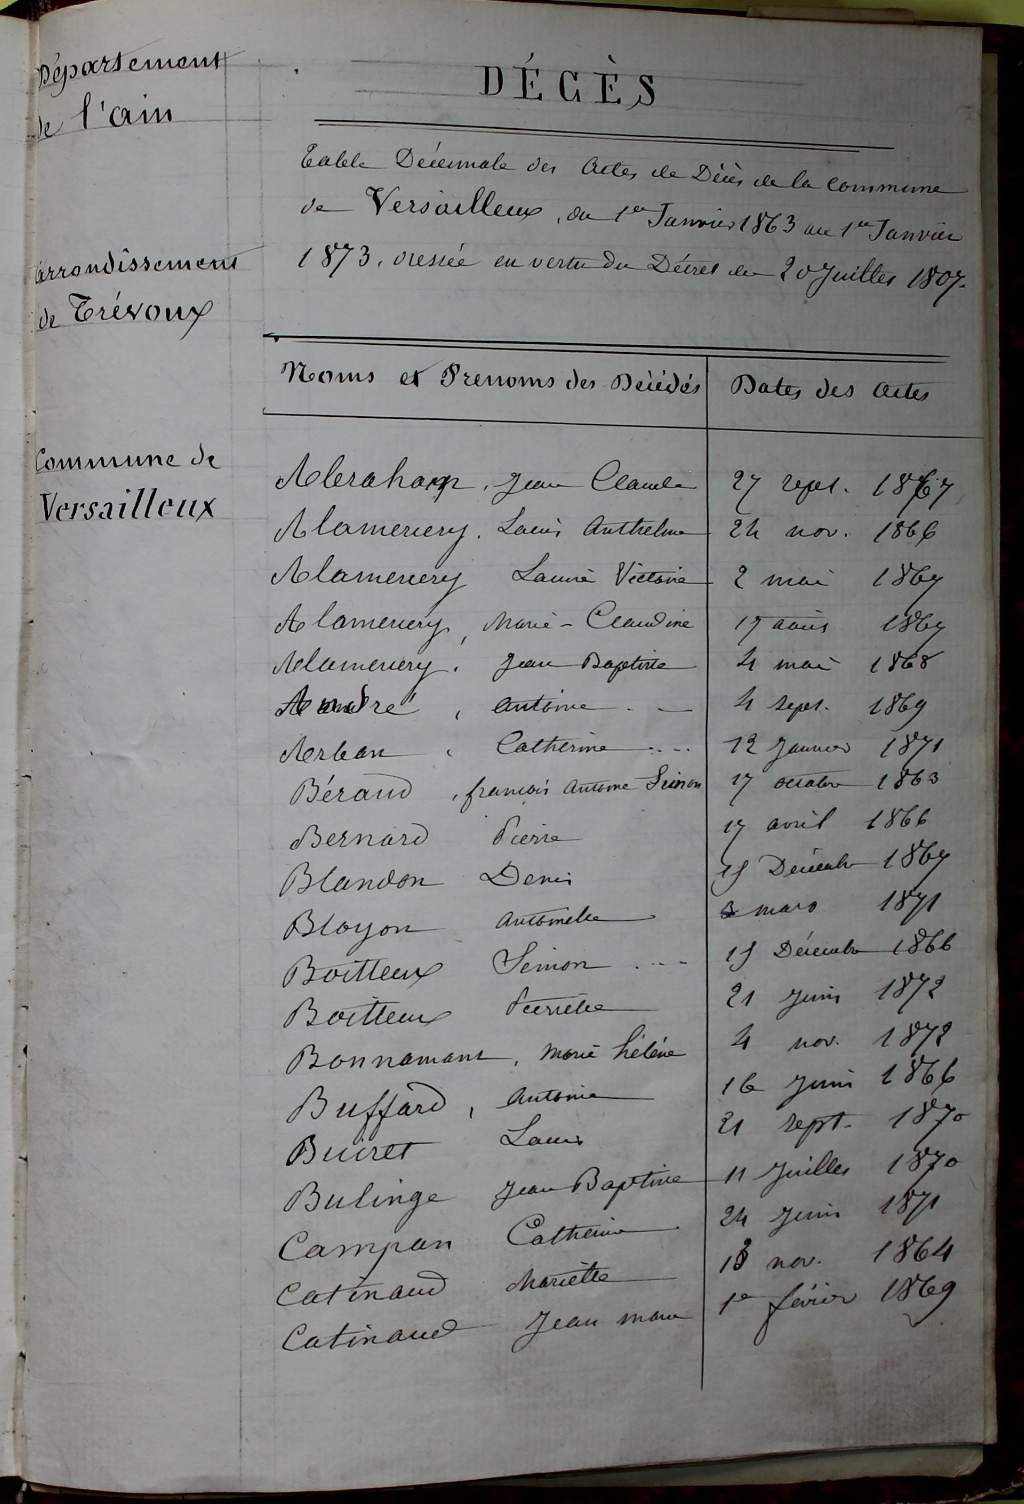 Département
de l'ain
DÉCÈS
Table Décennale des Actes de Décès de la commune
de Versailleux, du 1er Janvier 1863 au 1er Janvier
1873, dressée en vertu du Décret du 20 Juillet 1807.
Arrondissement
de Trévoux
Noms et Prenoms des Décédés Dates des actes
Commune de
Versailleux
Jean Claude 27 sept. 1867
Alamercery, Louis Anthelme 24 nov. 1866
Alamercery Laurie Victorie 2 mai 1867
Alamercery, Marie-Claudine 17 août 1867
Alamercery, Jean Baptiste 4 mai 1868
André, antoine 4 sept. 1869
Arban, Catherine 12 Janvier 1871
Béraud, françois Antoine Simon 17 octobre 1863
Bernard Pierre 17 avril 1866
Blandon Denis 15 Décembre 1867
Bloyon antoinette 3 mars 1871
Boitteux Simon 15 Décembre 1866
Boitteux Pierrette 21 Juin 1872
Bonnamant, Marie hélène 4 nov. 1872
Buffard, Antoine 16 Juin 1866
Buiret Louis 21 sept. 1870
Bulinge Jean Baptiste 11 Juillet 1870
Campan Catherine 24 Juin 1871
Catinaud Mariette 13 nov. 1864
Catinaud Jean marie 1er févier 1869